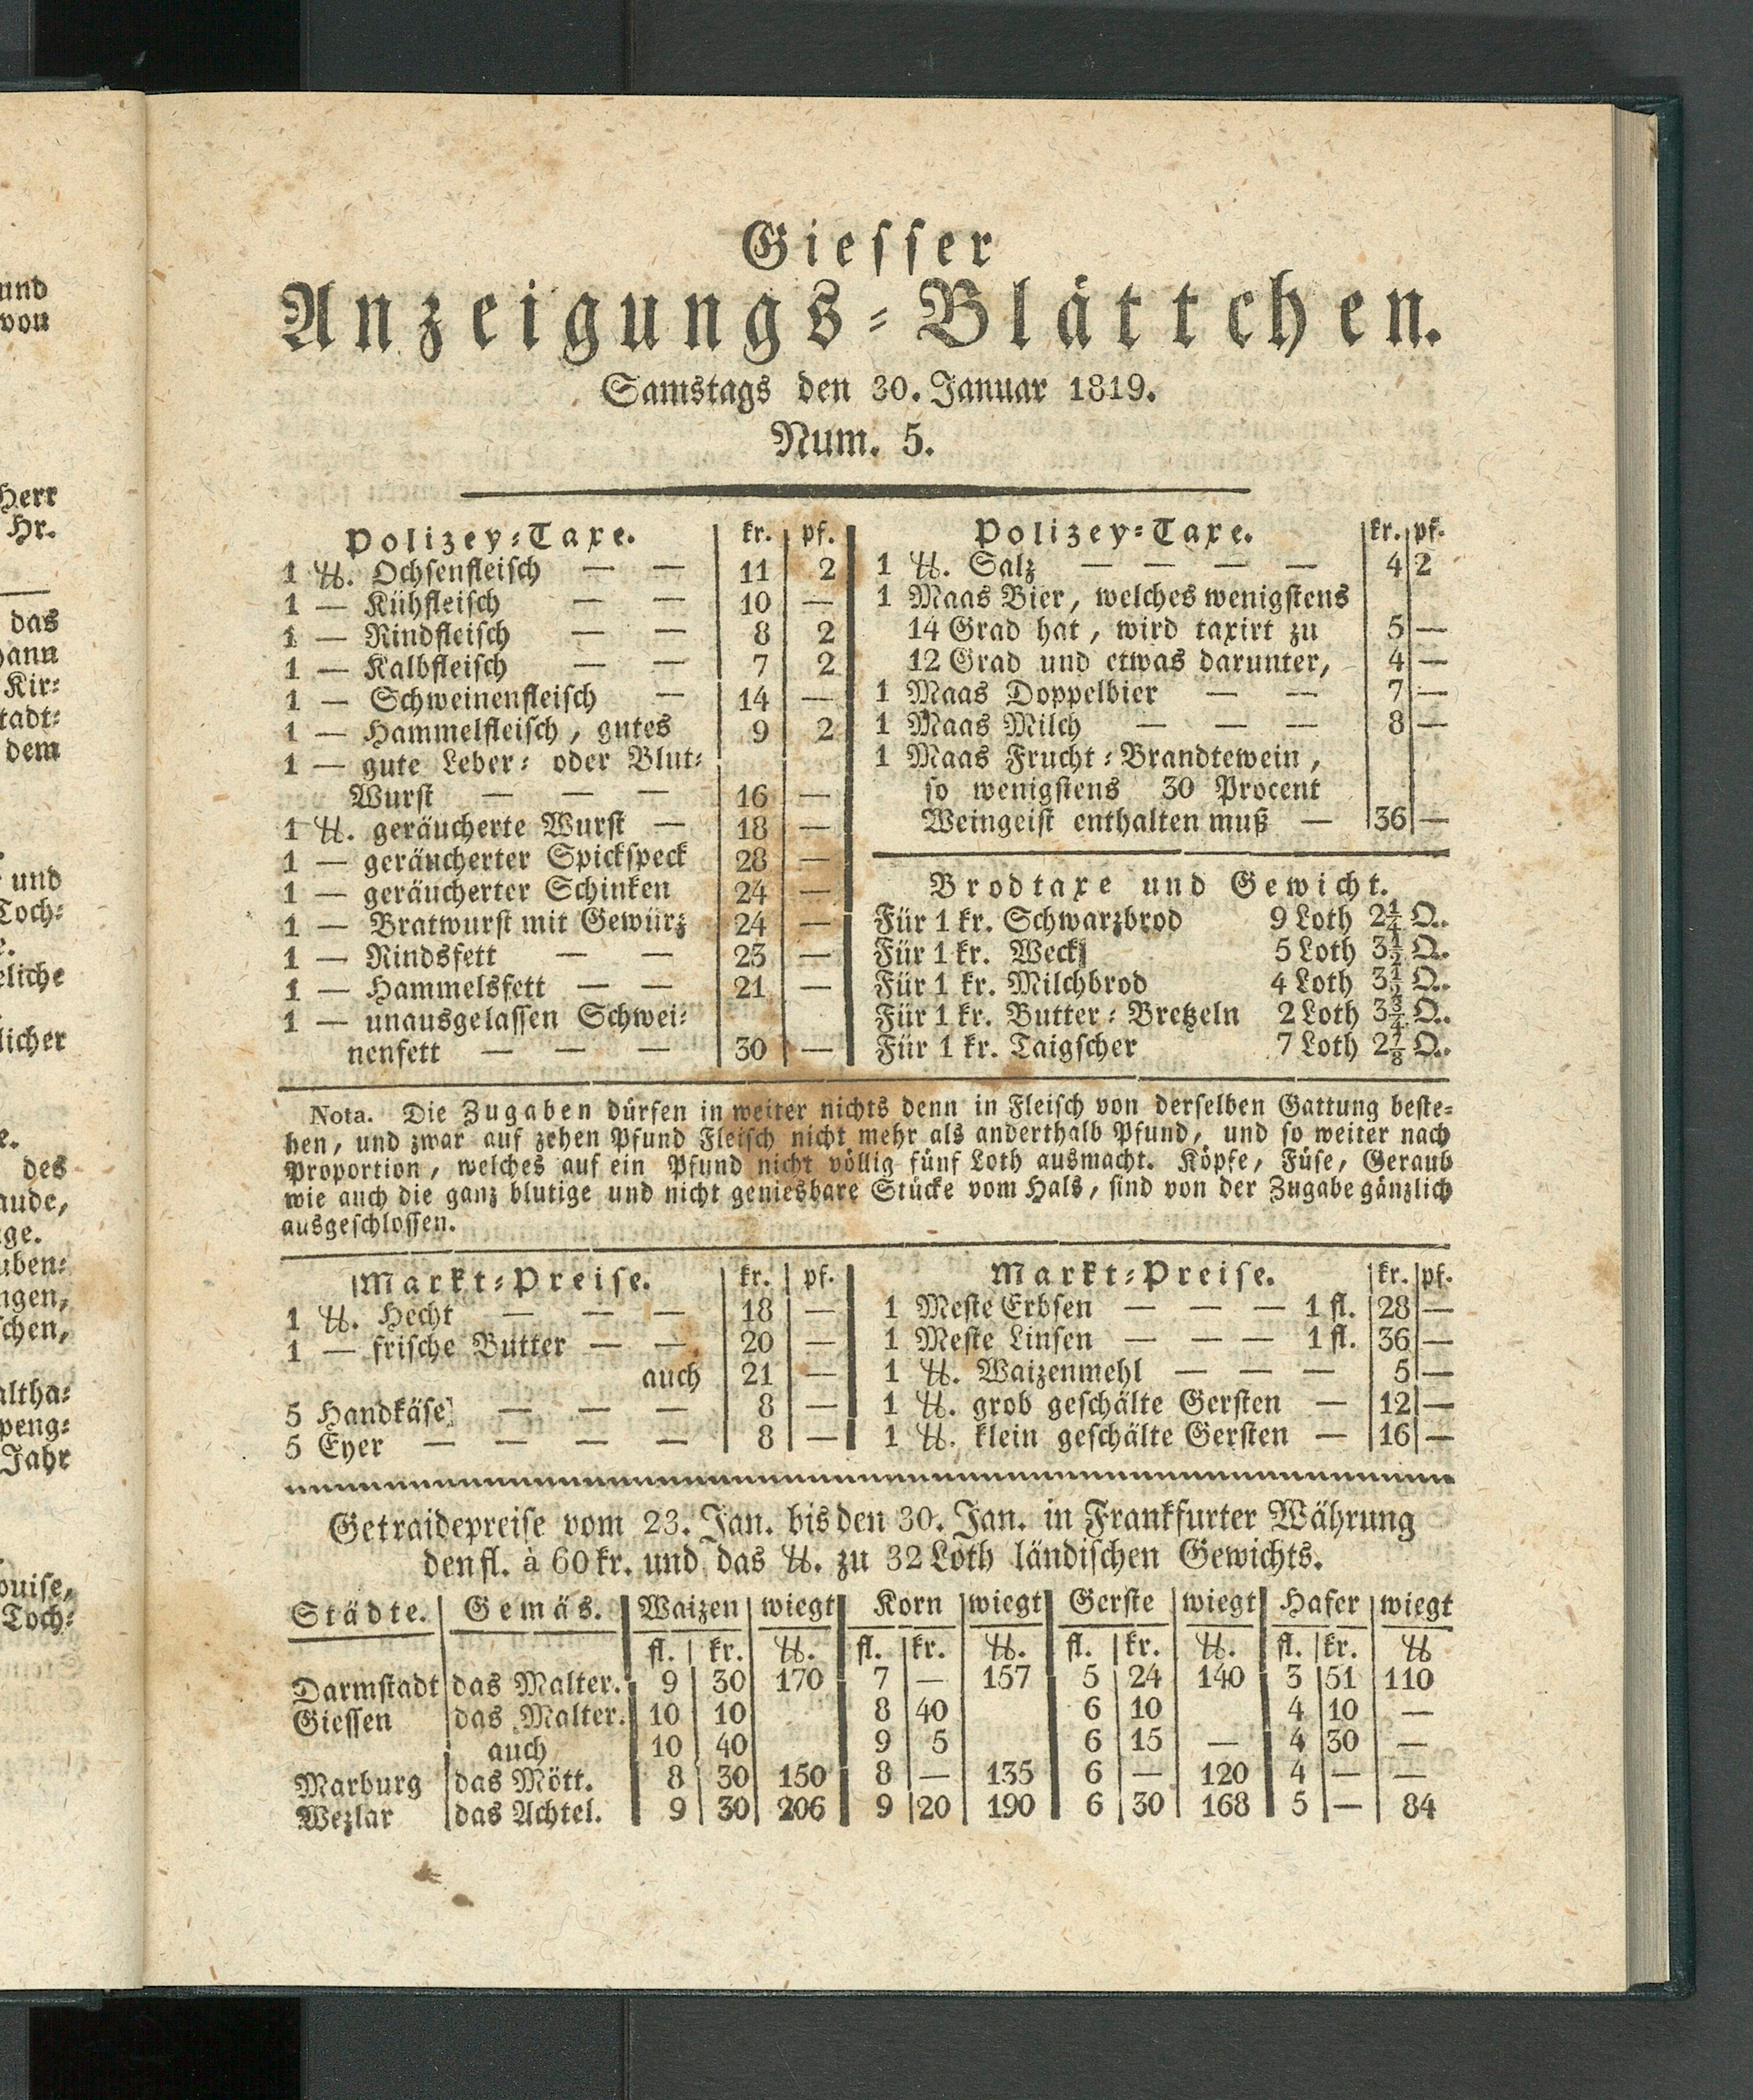 und
von
Herr
Hr.
das
hann
Kir⸗
tadt⸗
dem
und
Toch⸗
e.
eliche
licher
e.
des
aude,
ge.
uben⸗
ngen,
schen,
altha⸗
peng⸗
Jahr
ouise,
Toch⸗
Giesser
Anzeigungs⸗Blättchen.
Samstags den 30. Januar 1819.
Num. 5.
Polizey⸗Taxe. kr. pf.
1 ℔. Ochsenfleisch — — 11 2
1 — Kühfleisch — — 10 —
1 — Rindfleisch — — 8 2
1 — Kalbfleisch — — 7 2
1 — Schweinenfleisch — 14 —
1 — Hammelfleisch, gutes 9 2
1 — gute Leber⸗ oder Blut⸗
Wurst — — — 16 —
1 ℔. geräucherte Wurst — 18 —
1 — geräucherter Spickspeck 28 —
1 — geräucherter Schinken 24 —
1 — Bratwurst mit Gewürz 24 —
1 — Rindsfett — — 23 —
1 — Hammelsfett — — 21 —
1 — unausgelassen Schwei⸗
nenfett — — — 30 —
Polizey⸗Taxe. kr. pf.
1 ℔. Salz — — — — 4 2
1 Maas Bier, welches wenigstens
14 Grad hat, wird taxirt zu 5 —
12 Grad und etwas darunter, 4 —
1 Maas Doppelbier — — 7 —
1 Maas Milch — — — 8 —
1 Maas Frucht⸗Brandtewein,
so wenigstens 30 Procent
Weingeist enthalten muß — 36 —
Brodtaxe und Gewicht.
Für 1 kr. Schwarzbrod 9 Loth 2¼ Q.
Für 1 kr. Weck 5 Loth 3½ Q.
Für 1 kr. Milchbrod 4 Loth 3½ Q.
Für 1 kr. Butter⸗Bretzeln 2 Loth 3¾ Q.
Für 1 kr. Taigscher 7 Loth 2⅞ Q.
Nota. Die Zugaben dürfen in weiter nichts denn in Fleisch von derselben Gattung beste⸗
hen, und zwar auf zehen Pfund Fleisch nicht mehr als anderthalb Pfund, und so weiter nach
Proportion, welches auf ein Pfund nicht völlig fünf Loth ausmacht. Köpfe, Füse, Geraub
wie auch die ganz blutige und nicht geniesbare Stücke vom Hals, sind von der Zugabe gänzlich
ausgeschlossen.
Markt⸗Preise. kr. pf.
1 ℔. Hecht — — — 18 —
1 — frische Butter — — 20 —
auch 21 —
5 Handkäse — — — 8 —
5 Eyer — — — — 8 —
Markt⸗Preise. kr. pf.
1 Meste Erbsen — — — 1 fl. 28 —
1 Meste Linsen — — — 1 fl. 36 —
1 ℔. Waizenmehl — — — 5 —
1 ℔. grob geschälte Gersten — 12 —
1 ℔. klein geschälte Gersten — 16 —
Getraidepreise vom 23. Jan. bis den 30. Jan. in Frankfurter Währung
den fl. à 60 kr. und das ℔. zu 32 Loth ländischen Gewichts.
Städte. Gemäs. Waizen wiegt Korn wiegt Gerste wiegt Hafer wiegt
fl. kr. ℔. fl. kr. ℔. fl. kr. ℔. fl. kr. ℔
Darmstadt das Malter. 9 30 170 7 — 157 5 24 140 3 51 110
Giessen das Malter. 10 10 8 40 6 10 4 10 —
auch 10 40 9 5 6 15 — 4 30 —
Marburg das Mött. 8 30 150 8 — 135 6 — 120 4 — —
Wezlar das Achtel. 9 30 206 9 20 190 6 30 168 5 — 84